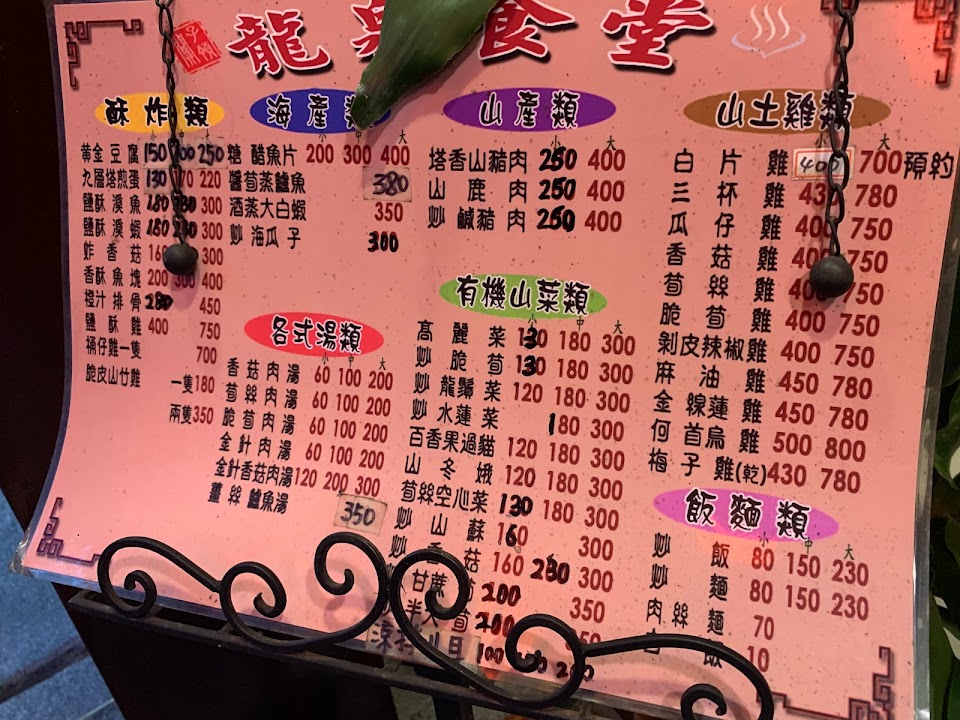 龍 食堂
酥炸類
小 中 大
黄金豆腐 150 200 250
九層塔煎蛋 130 170 220
鹽酥溪魚 180 300
鹽酥溪蝦 180 300
炸香菇 160 300
香酥魚塊 200 300 400
橙汁排骨 280 450
鹽酥雞 400 750
桶仔雞一隻 700
脆皮山竹雞 一隻180
兩隻350
海產類
小 中 大
糖醋魚片 200 300 400
醬荀蒸鱸魚 380
酒蒸大白蝦 350
炒海瓜子 300
各式湯類
小 中 大
香菇肉湯 60 100 200
荀絲肉湯 60 100 200
脆荀肉湯 60 100 200
金針肉湯 60 100 200
金針香菇肉湯 120 200 300
薑絲鱸魚湯 350
山產類
小 大
塔香山豬肉 250 400
山鹿肉 250 400
炒鹹豬肉 250 400
有機山菜類
小 中 大
高麗菜 130 180 300
炒脆荀 130 180 300
炒龍鬚菜 120 180 300
炒水蓮菜 180 300
百香果過貓 120 180 300
山冬娥 120 180 300
荀絲空心菜 130 180 300
炒山蘇 160 300
炒香菇 160 230 300
甘蔗荀 200 350
半天荀 200
100 200
山土雞類
小 大
白片雞 400 700 預約
三杯雞 430 780
瓜仔雞 400 750
香菇雞 400 750
荀絲雞 400 750
脆荀雞 400 750
剝皮辣椒雞 400 750
麻油雞 450 780
金線蓮雞 450 780
何首烏雞 500 800
梅子雞(乾) 430 780
飯麵類
小 中 大
炒飯 80 150 230
炒麵 80 150 230
肉絲麵 70
白飯 10